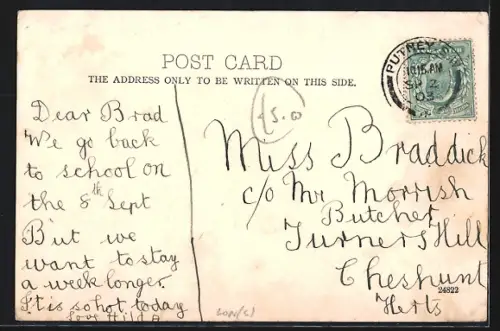 POST CARD
THE ADDRESS ONLY TO BE WRITTEN ON THIS SIDE.
PUTNEY S.W
10.15 AM
SP 2
Dear Brad
We go back
to school on
the 8th Sept
But we
want to stay
a week longer.
It is so hot today
love Hild A
Miss Braddick
c/o Mr Morrish
Butcher
Turners Hill
Cheshunt
Herts
24822